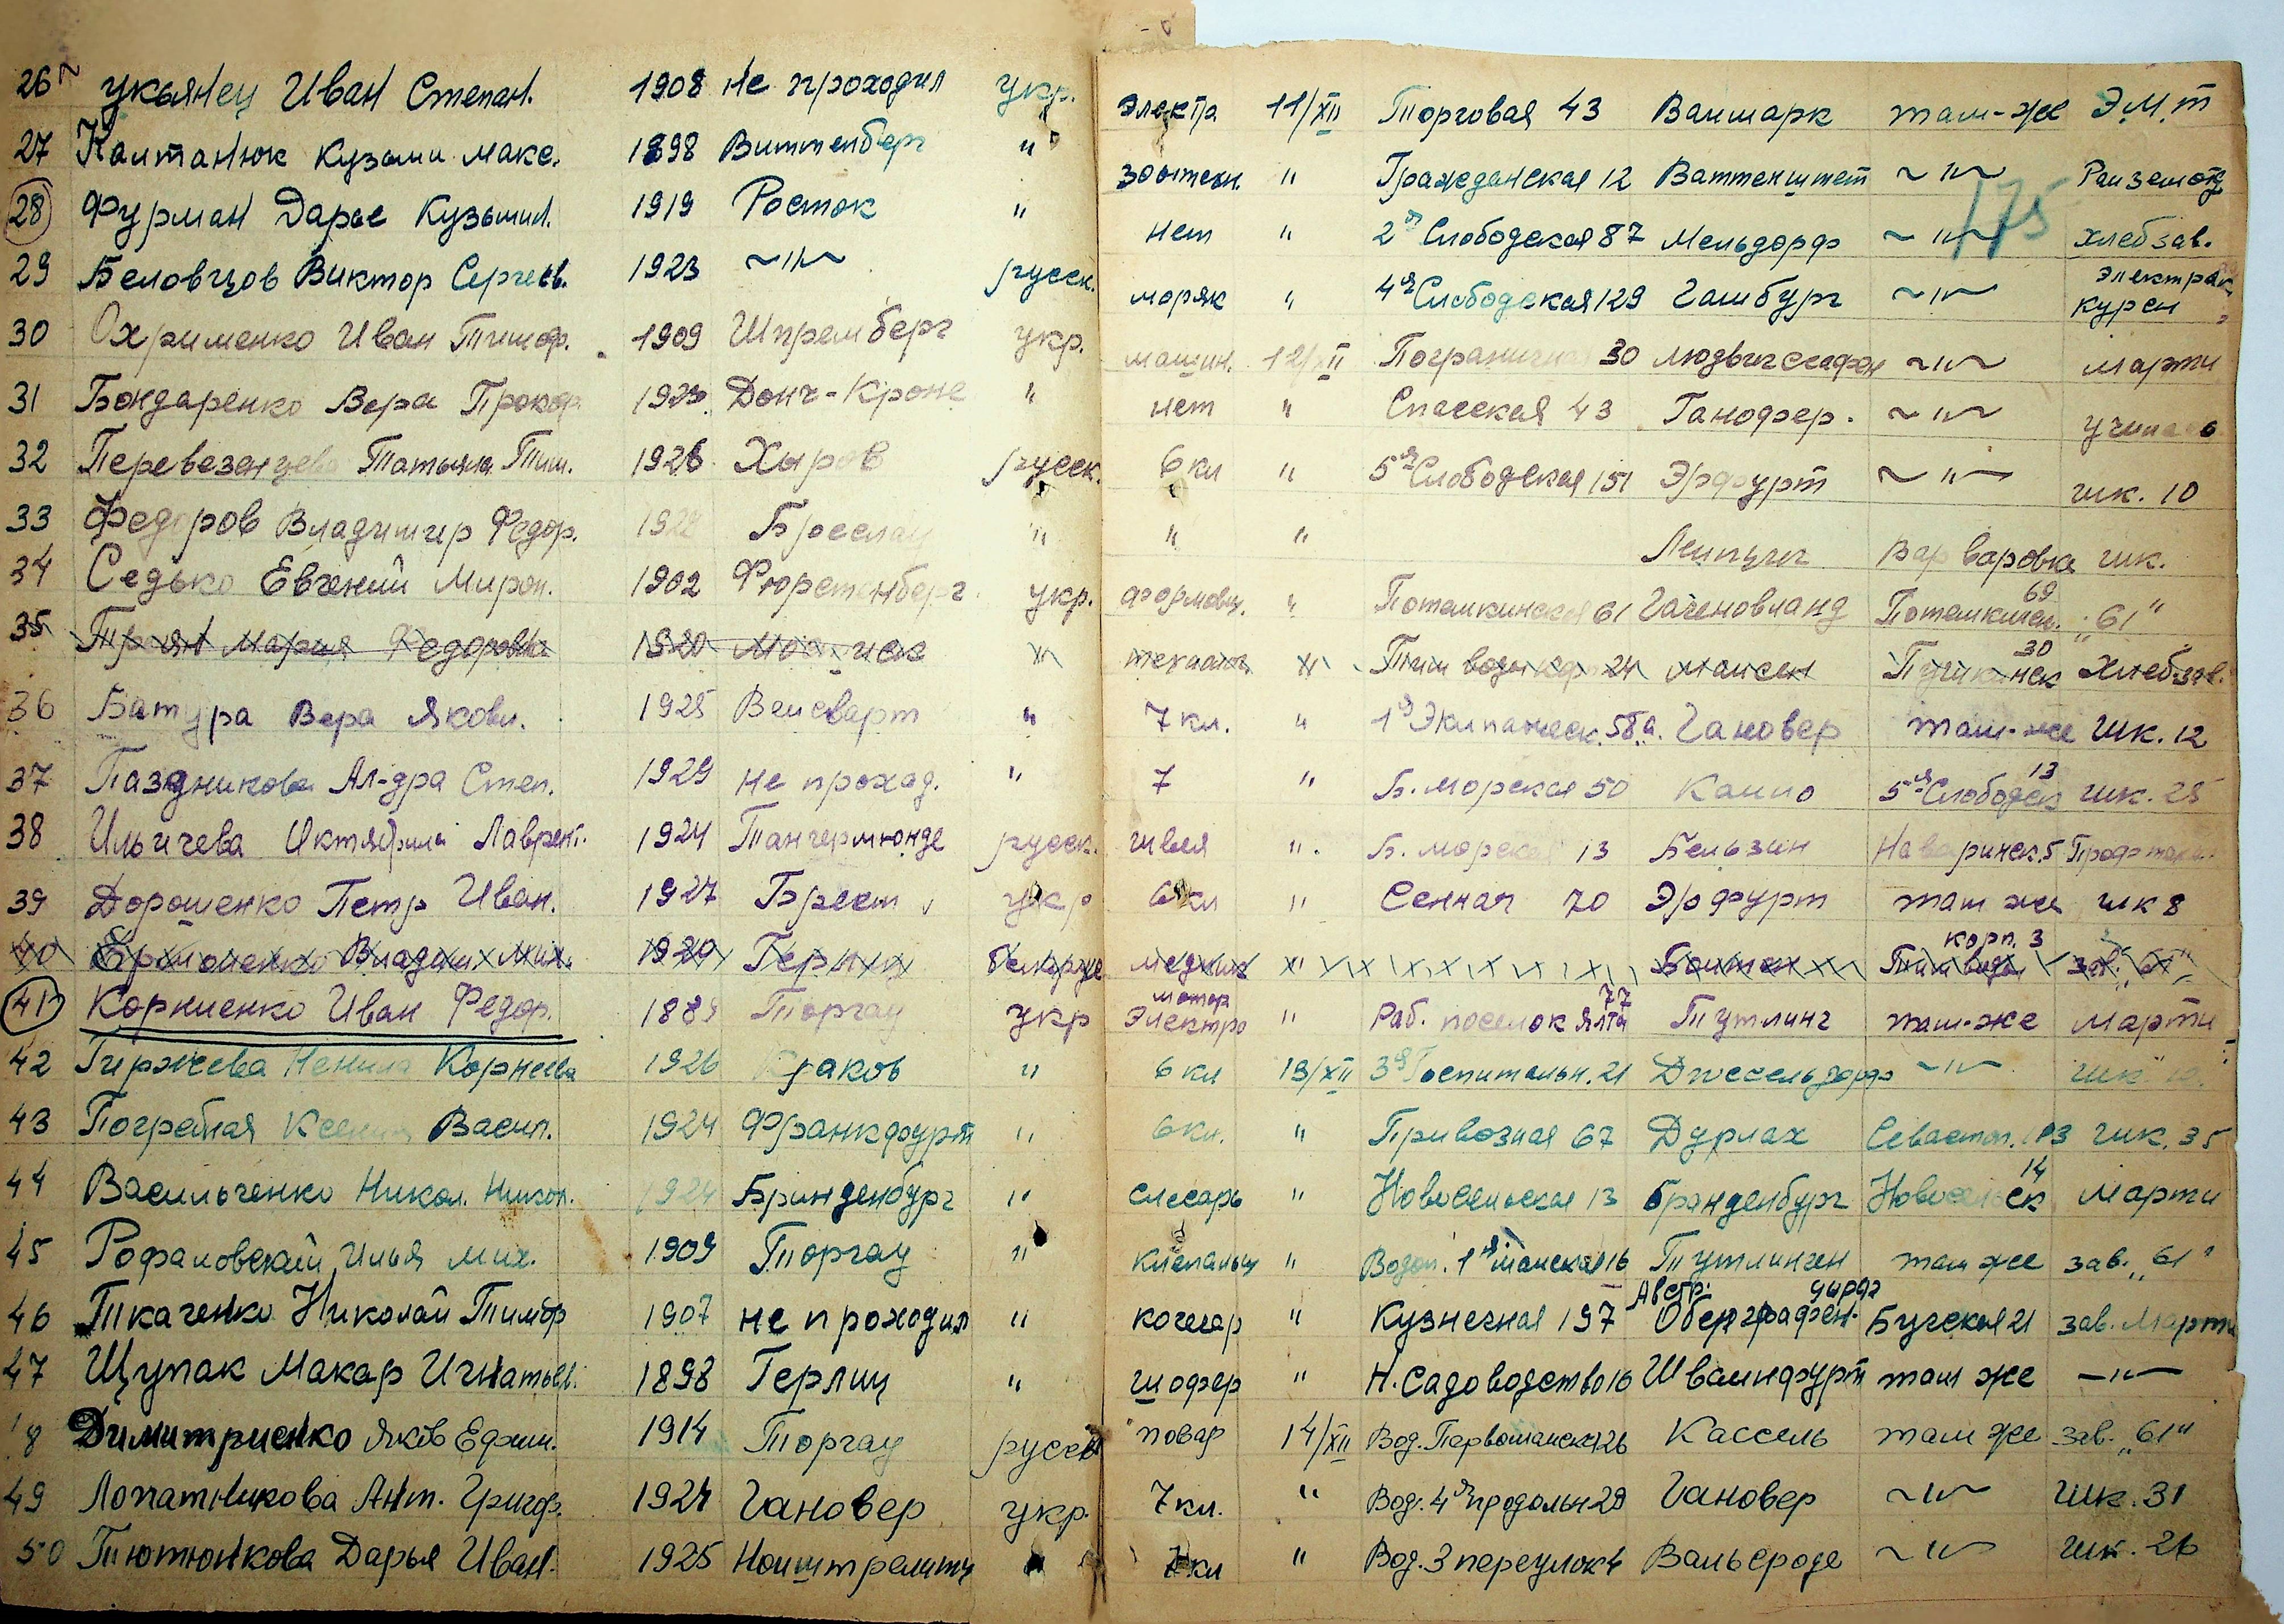 26 Лукьянец Иван Степан. 1908 не проходил укр. Электр 11/XII Торговая 43 Ваймарк там-же Э.М.Т
27 Калтанюк Кузьми Макс. 1898 Виттенберг " зоотехн. " Гражданская 12 Ваттенштет ~"~
28 Фурман Дарье Кузьмин. 1919 Росток " нет " 2я Слободская 87 Мельдорф ~"~ хлебзав.
175
29 Беловцов Виктор Сергеев. 1923 ~"~ русск. моряк " 4я Слободская 129 Гамбург ~"~ электрик курен
30 Охрименко Иван Тимоф. 1909 Шпремберг укр. машин. 12/XII Погранична 30 Людвигсгафен ~"~ Марти
31 Бондаренко Вера Прокоф. 1923 Дойч-Кроне " нет " Спасская 43 Ганофер. ~"~
32 Перевезенцева Татьяна Тим. 1926 Хыров русск. 6 кл " 5я Слободская 151 Эрфурт ~"~ шк. 10
33 Федоров Владимир Федор. Бреслау " " " Лейпциг Варваровка шк.
34 Седько Евгений Мирон. 1902 Фюрстенберг укр. формовщ. " Потемкинская 61 Гагеновланд Потемкинск. 69 "61"
35 Троян Мария Федоровна 1920 " " 24 30 Хлебзав.
36 Батура Вера Яковл. 1925 Вейсварт " 7 кл. " 1я Экипажеск. 58а. Гановер там-же шк. 12
37 Паздникова Ал-дра Степ. 1929 не проход. " 7 " Б. морская 50 5я Слободск 13 шк. 25
38 Ильичева Октябрина Лаврент. 1924 Тангермюнде русск. швея " Б. морская 13 Бельзин Наваринск. 5
39 Дорошенко Петр Иван. 1927 Брест укр 6 кл " Сенная 70 Эрфурт там же шк 8
40 Владим. Мих. 1920 медник " корп. 3
41 Корниенко Иван Федор. 1889 Торгау укр Электро мотор " Раб. поселок Ялта 77 Тутлинг там-же Марти
42 Гиржева Ненила Корнеева 1926 Краков " 6 кл 13/XII 3я Госпитальн. 21 Дюссельдорф ~"~ шк.
43 Погребная Ксения Васил. 1924 Франкфурт " 6 кл. " Привозная 67 Дурлах Севастоп. 103 шк. 35
44 Васильченко Никол. Никол. 1924 Бранденбург " слесарь " Новосельская 13 Бранденбург Новосельск 14 Марти
45 Рофаловский Илья Мих. 1909 Торгау " клепальщ " Водоп. 1я Майская 16 Тутлинген там же зав. "61"
46 Ткаченко Николай Тимоф 1907 не проходил " кочегар " Кузнечная 197 Австр. Бугская 21 зав. Марти
47 Щупак Макар Игнатьев. 1898 Герлиц " шофер " Н. Садоводство 16 Швайнфурт там же -"-
48 Димитриенко Яков Ефим. 1914 Торгау русск повар 14/XII Вод. Первомайская 26 Кассель там же зав. "61"
49 Лопатникова Ант. Григор. 1924 Гановер укр. 7 кл. " Вод. 4я продольн 29 Гановер ~"~ шк. 31
50 Тютюнкова Дарья Иван. 1925 Нойштрелитц " 7 кл " Вод. 3 переулок 4 Вальсроде ~"~ шк. 26